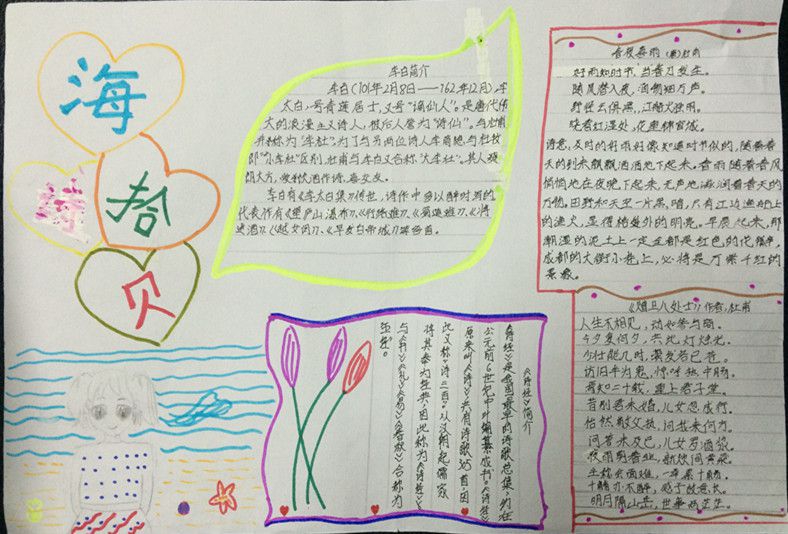 诗
海
拾
贝
李白简介
李白(701年2月8日——762年12月),字
太白,号青莲居士,又号“谪仙人”。是唐代伟
大的浪漫主义诗人,被后人誉为“诗仙”。与杜甫
并称为“李杜”,为了与另两位诗人李商隐与杜牧
即“小李杜”区别,杜甫与李白又合称“大李杜”。其人爽
朗大方,爱饮酒作诗,喜交友。
李白有《李太白集》传世,诗作中多以醉时写的
代表作有《望庐山瀑布》、《行路难》、《蜀道难》、《将
进酒》、《越女词》、《早发白帝城》等多首。
春夜喜雨 (唐)杜甫
好雨知时节,当春乃发生。
随风潜入夜,润物细无声。
野径云俱黑,江船火独明。
晓看红湿处,花重锦官城。
诗意:及时的好雨好像知道时节似的,随着春
天的到来飘飘洒洒地下起来。春雨随着春风
悄悄地在夜晚下起来,无声地滋润着春天的
万物。田野和天空一片黑暗,只有江边渔船上
的渔火,显得格外的明亮。早晨起来,那
潮湿的泥土上一定全都是红色的花瓣,
成都的大街小巷上,必将是万紫千红的
景象。
《赠卫八处士》作者:杜甫
人生不相见,动如参与商。
今夕复何夕,共此灯烛光。
少壮能几时,鬓发各已苍。
访旧半为鬼,惊呼热中肠。
焉知二十载,重上君子堂。
昔别君未婚,儿女忽成行。
怡然敬父执,问我来何方。
问答未及已,儿女罗酒浆。
夜雨剪春韭,新炊间黄粱。
主称会面难,一举累十觞。
十觞亦不醉,感子故意长。
明日隔山岳,世事两茫茫。
《诗经》简介
《诗经》是我国最早的诗歌总集,约在
公元前6世纪中叶编纂成书。《诗经》
原来叫《诗》,共有诗歌305首,因
此又称“诗三百”。从汉朝起儒家
将其奉为经典,因此称为《诗经》,
与《书》《礼》《易》《春秋》合称为
五经。